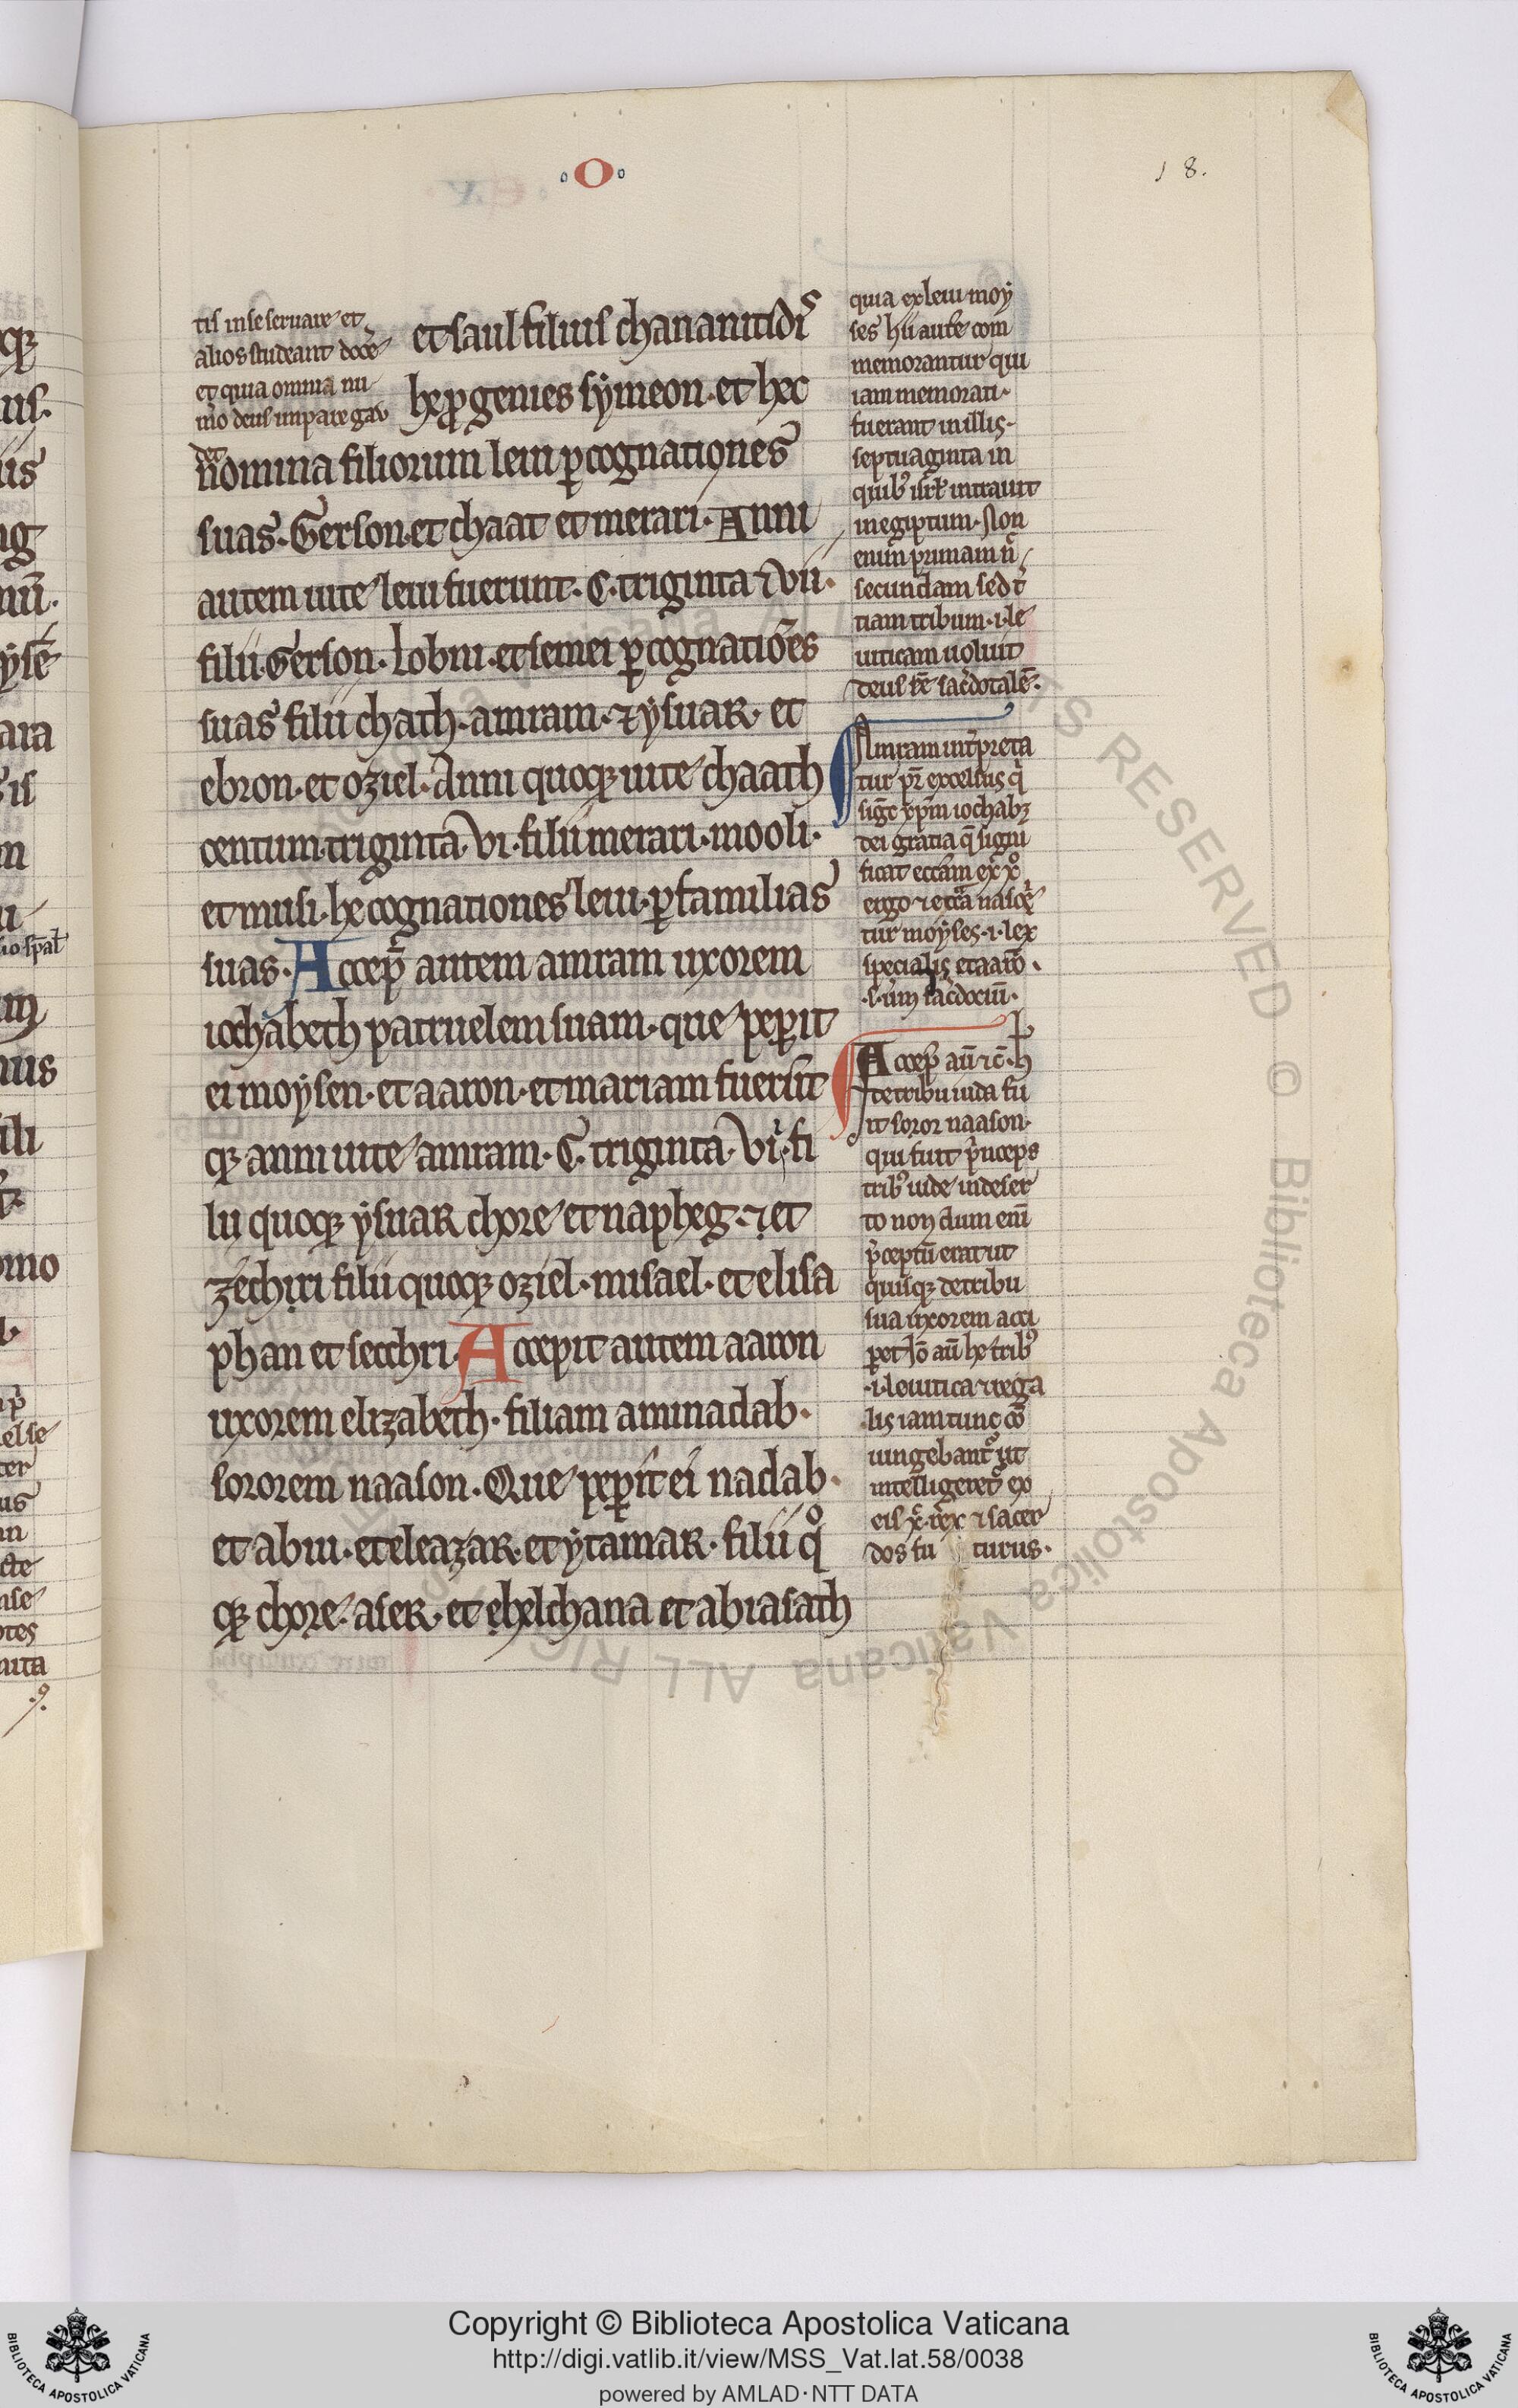 O
18.
tis in se seruare et
alios studeant docere
et quia omnia nu
mo deus inpare gau
det
et saul filius chananitidis
he progenies symeon. et hec
nomina filiorum leui p cognationes
suas. Gerson. et chaat et merari. Anni
autem uite leui fuerunt. C. triginta & vii.
filii. Gerson. Lobni. et semei p cognatiões
suas filii chath. amram. & ysuar. et
ebron. et oziel. Anni quoq uite chaath
centum. triginta. vi. filii merari. mooli.
et musi. he cognationes leui. p familias
suas. Accep autem amram uxorem
iochabeth patruelem suam. que peperit
ei moysen. et aaron. et mariam fuerūt
q anni uite amram. C. triginta. vi. fi
lii quoq ysuar chore et napheg. & et
zechiri filii quoq oziel. misael. et elisa
phan et secchri. Accepit autem aaron
uxorem elizabeth. filiam aminadab.
sororem naason. Que peperit ei nadab.
et abiu. et eleazar. et ytamar. filii quo
q chore. aser. et ehelchana et abiasath
quia ex leui moy
ses hii aute com
memorantur qui
iam memorati.
fuerant in illis.
septuaginta in
quib isrl intrauit
in egiptum. Non
enim primam n
secundam sed t
tiam tribum .i. le
uiticam uoluit
deus eē sacdotalē.
Amram intpreta
tur pr excelsus q
sigc xpm iochab
dei gratia q signi
ficat eccam ex xo
ergo & ecca nasce
tur moyses .i. lex
specialis et aarō.
.s. um sacdociū.
Accep aū &c. h
de tribu iuda fu
it soror naason.
qui fuit pnceps
trib iude in deser
to non dum enī
pceptū erat ut
quisq de tribu
sua uxorem acci
pet Io aū he trib
.i. leuitica & rega
lis iam tunc cō
iungebant ut
intelligeret ex
eis x rex & sacer
dos fu turus.
Copyright © Biblioteca Apostolica Vaticana
http://digi.vatlib.it/view/MSS_Vat.lat.58/0038
powered by AMLAD·NTT DATA
BIBLIOTECA APOSTOLICA VATICANA
BIBLIOTECA APOSTOLICA VATICANA